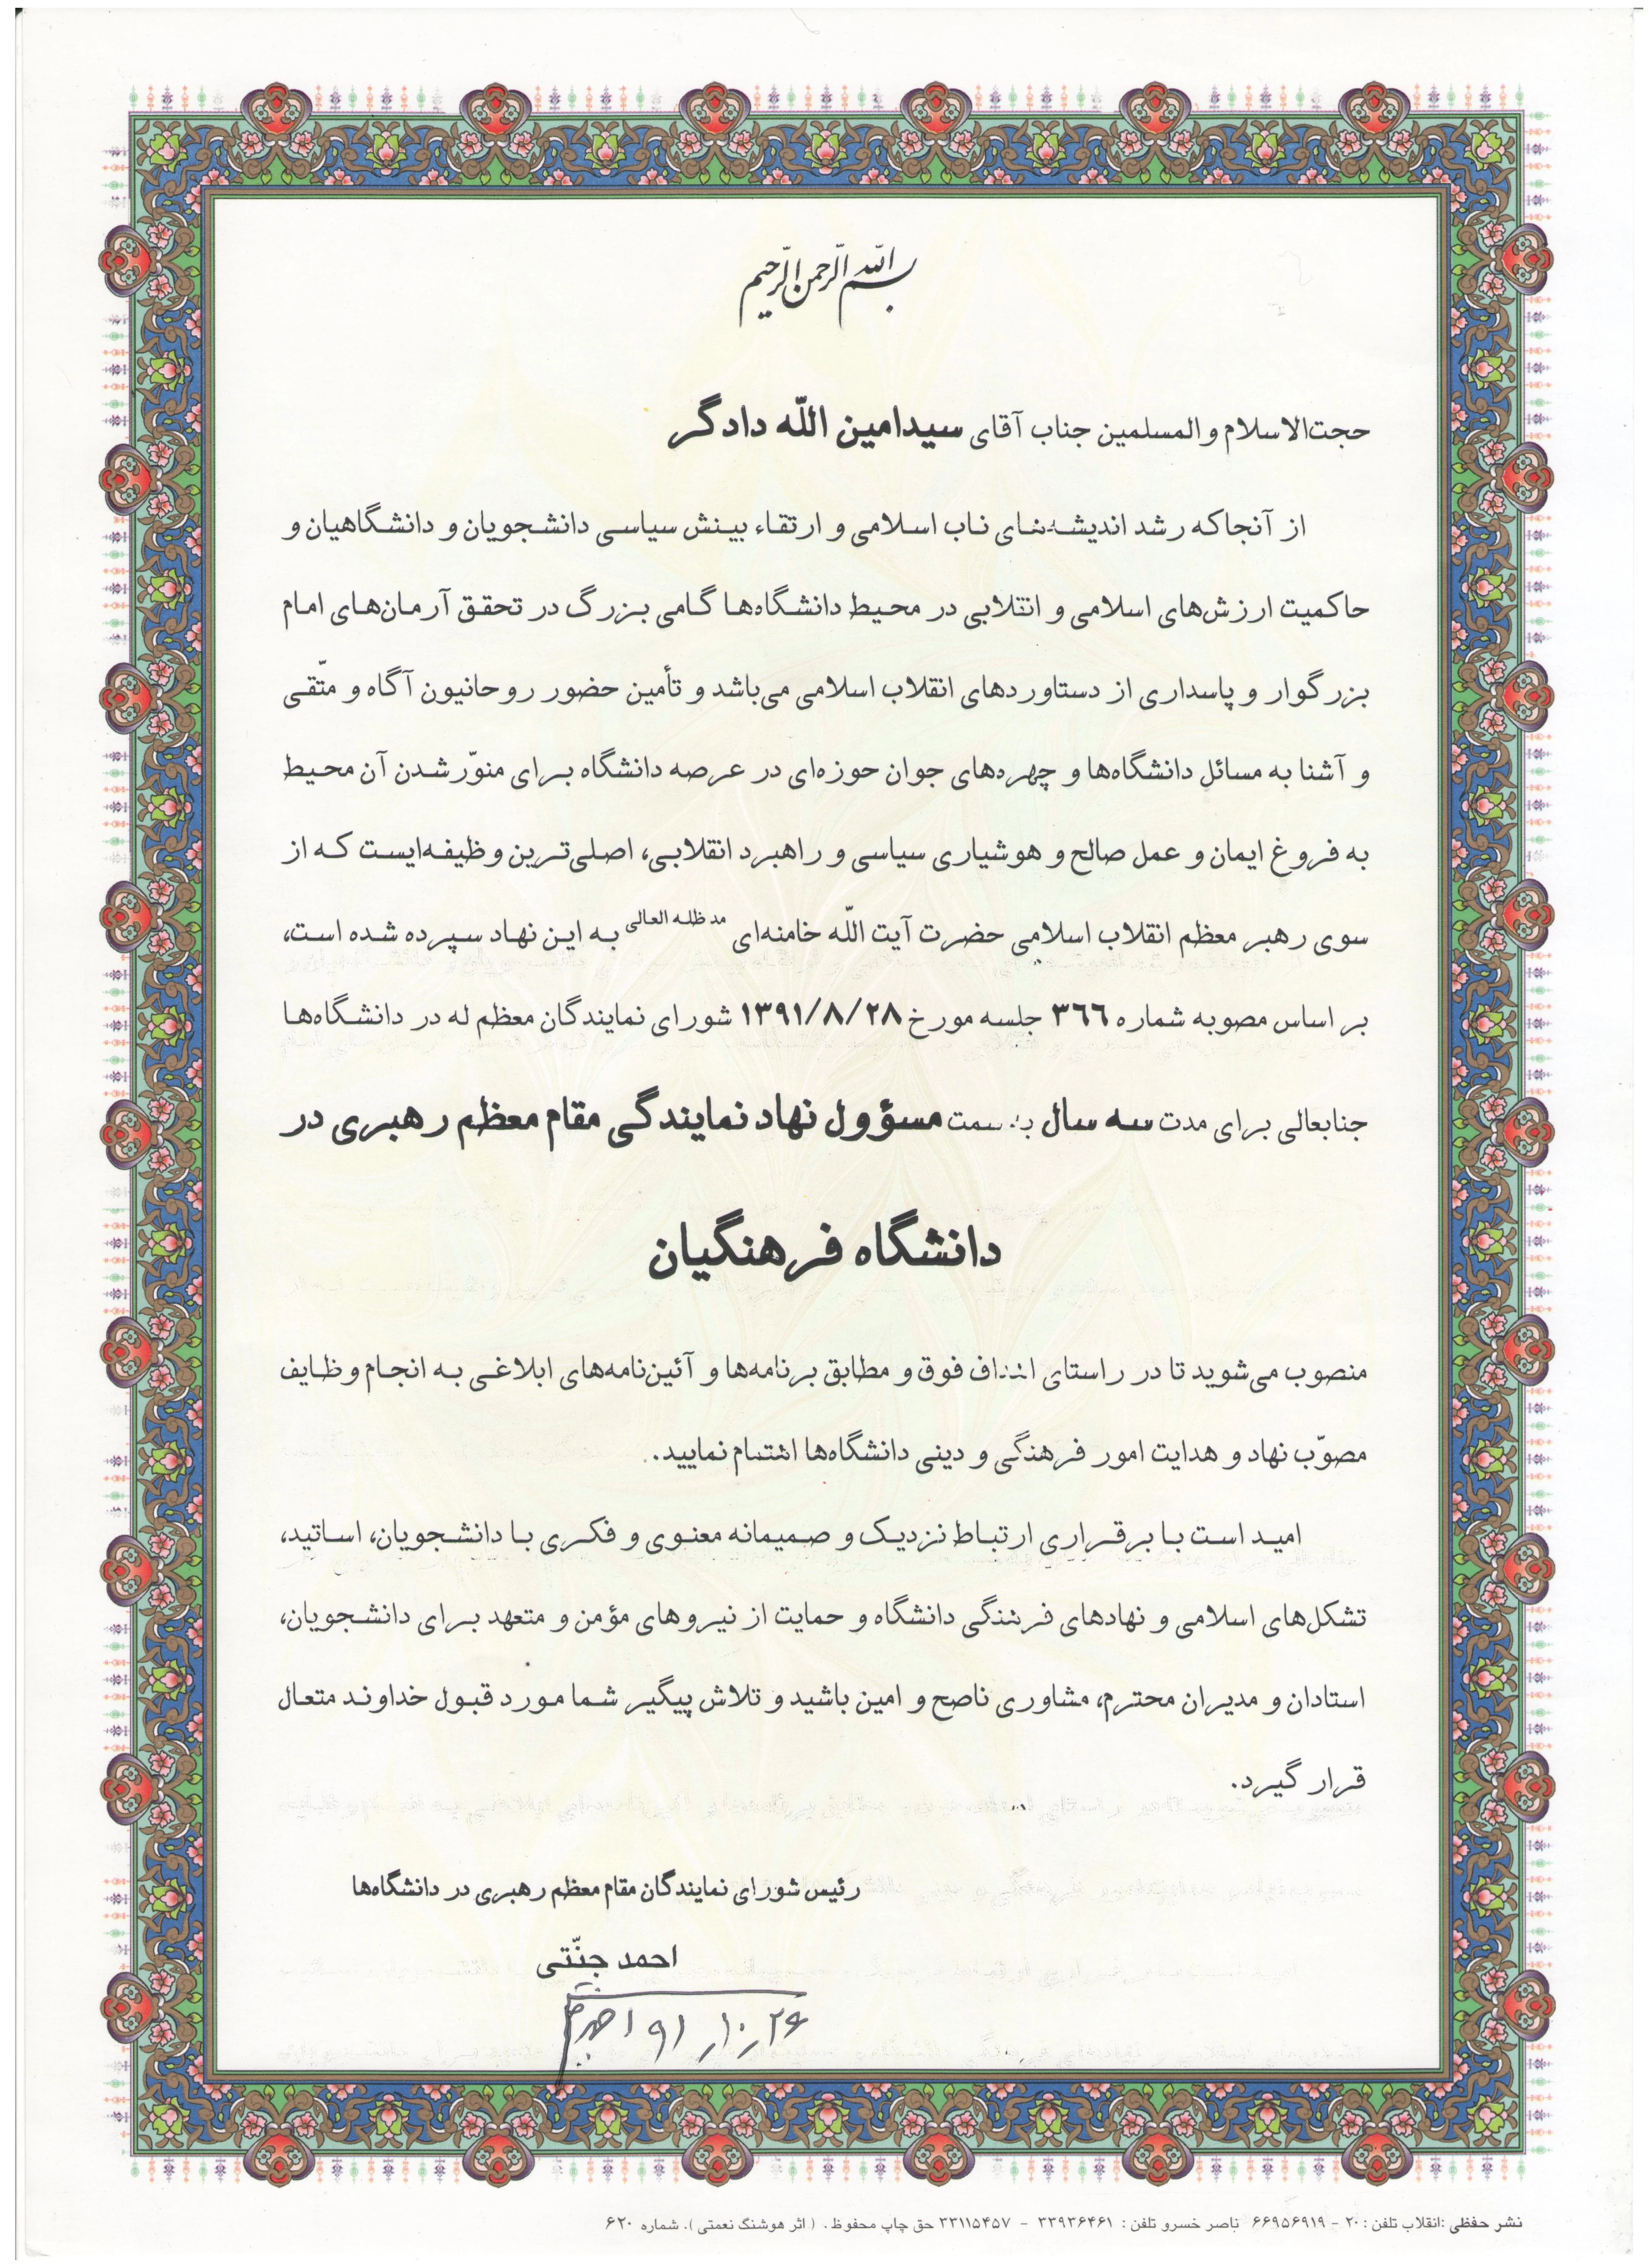 بسم الله الرحمن الرحیم
حجت‌الاسلام والمسلمین جناب آقای سیدامین اللّه دادگر
از آنجاکه رشد اندیشه‌های ناب اسلامی و ارتقاء بینش سیاسی دانشجویان و دانشگاهیان و
حاکمیت ارزش‌های اسلامی و انقلابی در محیط دانشگاه‌ها گامی بزرگ در تحقق آرمان‌های امام
بزرگوار و پاسداری از دستاوردهای انقلاب اسلامی می‌باشد و تأمین حضور روحانیون آگاه و متّقی
و آشنا به مسائل دانشگاه‌ها و چهره‌های جوان حوزه‌ای در عرصه دانشگاه برای منوّر شدن آن محیط
به فروغ ایمان و عمل صالح و هوشیاری سیاسی و راهبرد انقلابی، اصلی‌ترین وظیفه‌ایست که از
سوی رهبر معظم انقلاب اسلامی حضرت آیت اللّه خامنه‌ای مد ظله العالی به این نهاد سپرده شده است،
بر اساس مصوبه شماره ۳۶۶ جلسه مورخ ۱۳۹۱/۸/۲۸ شورای نمایندگان معظم له در دانشگاه‌ها
جنابعالی برای مدت سه سال به سمت مسؤول نهاد نمایندگی مقام معظم رهبری در
دانشگاه فرهنگیان
منصوب می‌شوید تا در راستای اهداف فوق و مطابق برنامه‌ها و آئین‌نامه‌های ابلاغی به انجام وظایف
مصوّب نهاد و هدایت امور فرهنگی و دینی دانشگاه‌ها اهتمام نمایید.
امید است با برقراری ارتباط نزدیک و صمیمانه معنوی و فکری با دانشجویان، اساتید،
تشکل‌های اسلامی و نهادهای فرهنگی دانشگاه و حمایت از نیروهای مؤمن و متعهد برای دانشجویان،
استادان و مدیران محترم، مشاوری ناصح و امین باشید و تلاش پیگیر شما مورد قبول خداوند متعال
قرار گیرد.
رئیس شورای نمایندگان مقام معظم رهبری در دانشگاه‌ها
احمد جنّتی
۹۱/۱۰/۲۶
نشر حفظی :انقلاب تلفن : ۲۰ - ۶۶۹۵۶۹۱۹ ناصر خسرو تلفن : ۳۳۹۳۶۴۶۱ - ۳۳۱۱۵۴۵۷ حق چاپ محفوظ . ( اثر هوشنگ نعمتی ). شماره ۶۲۰